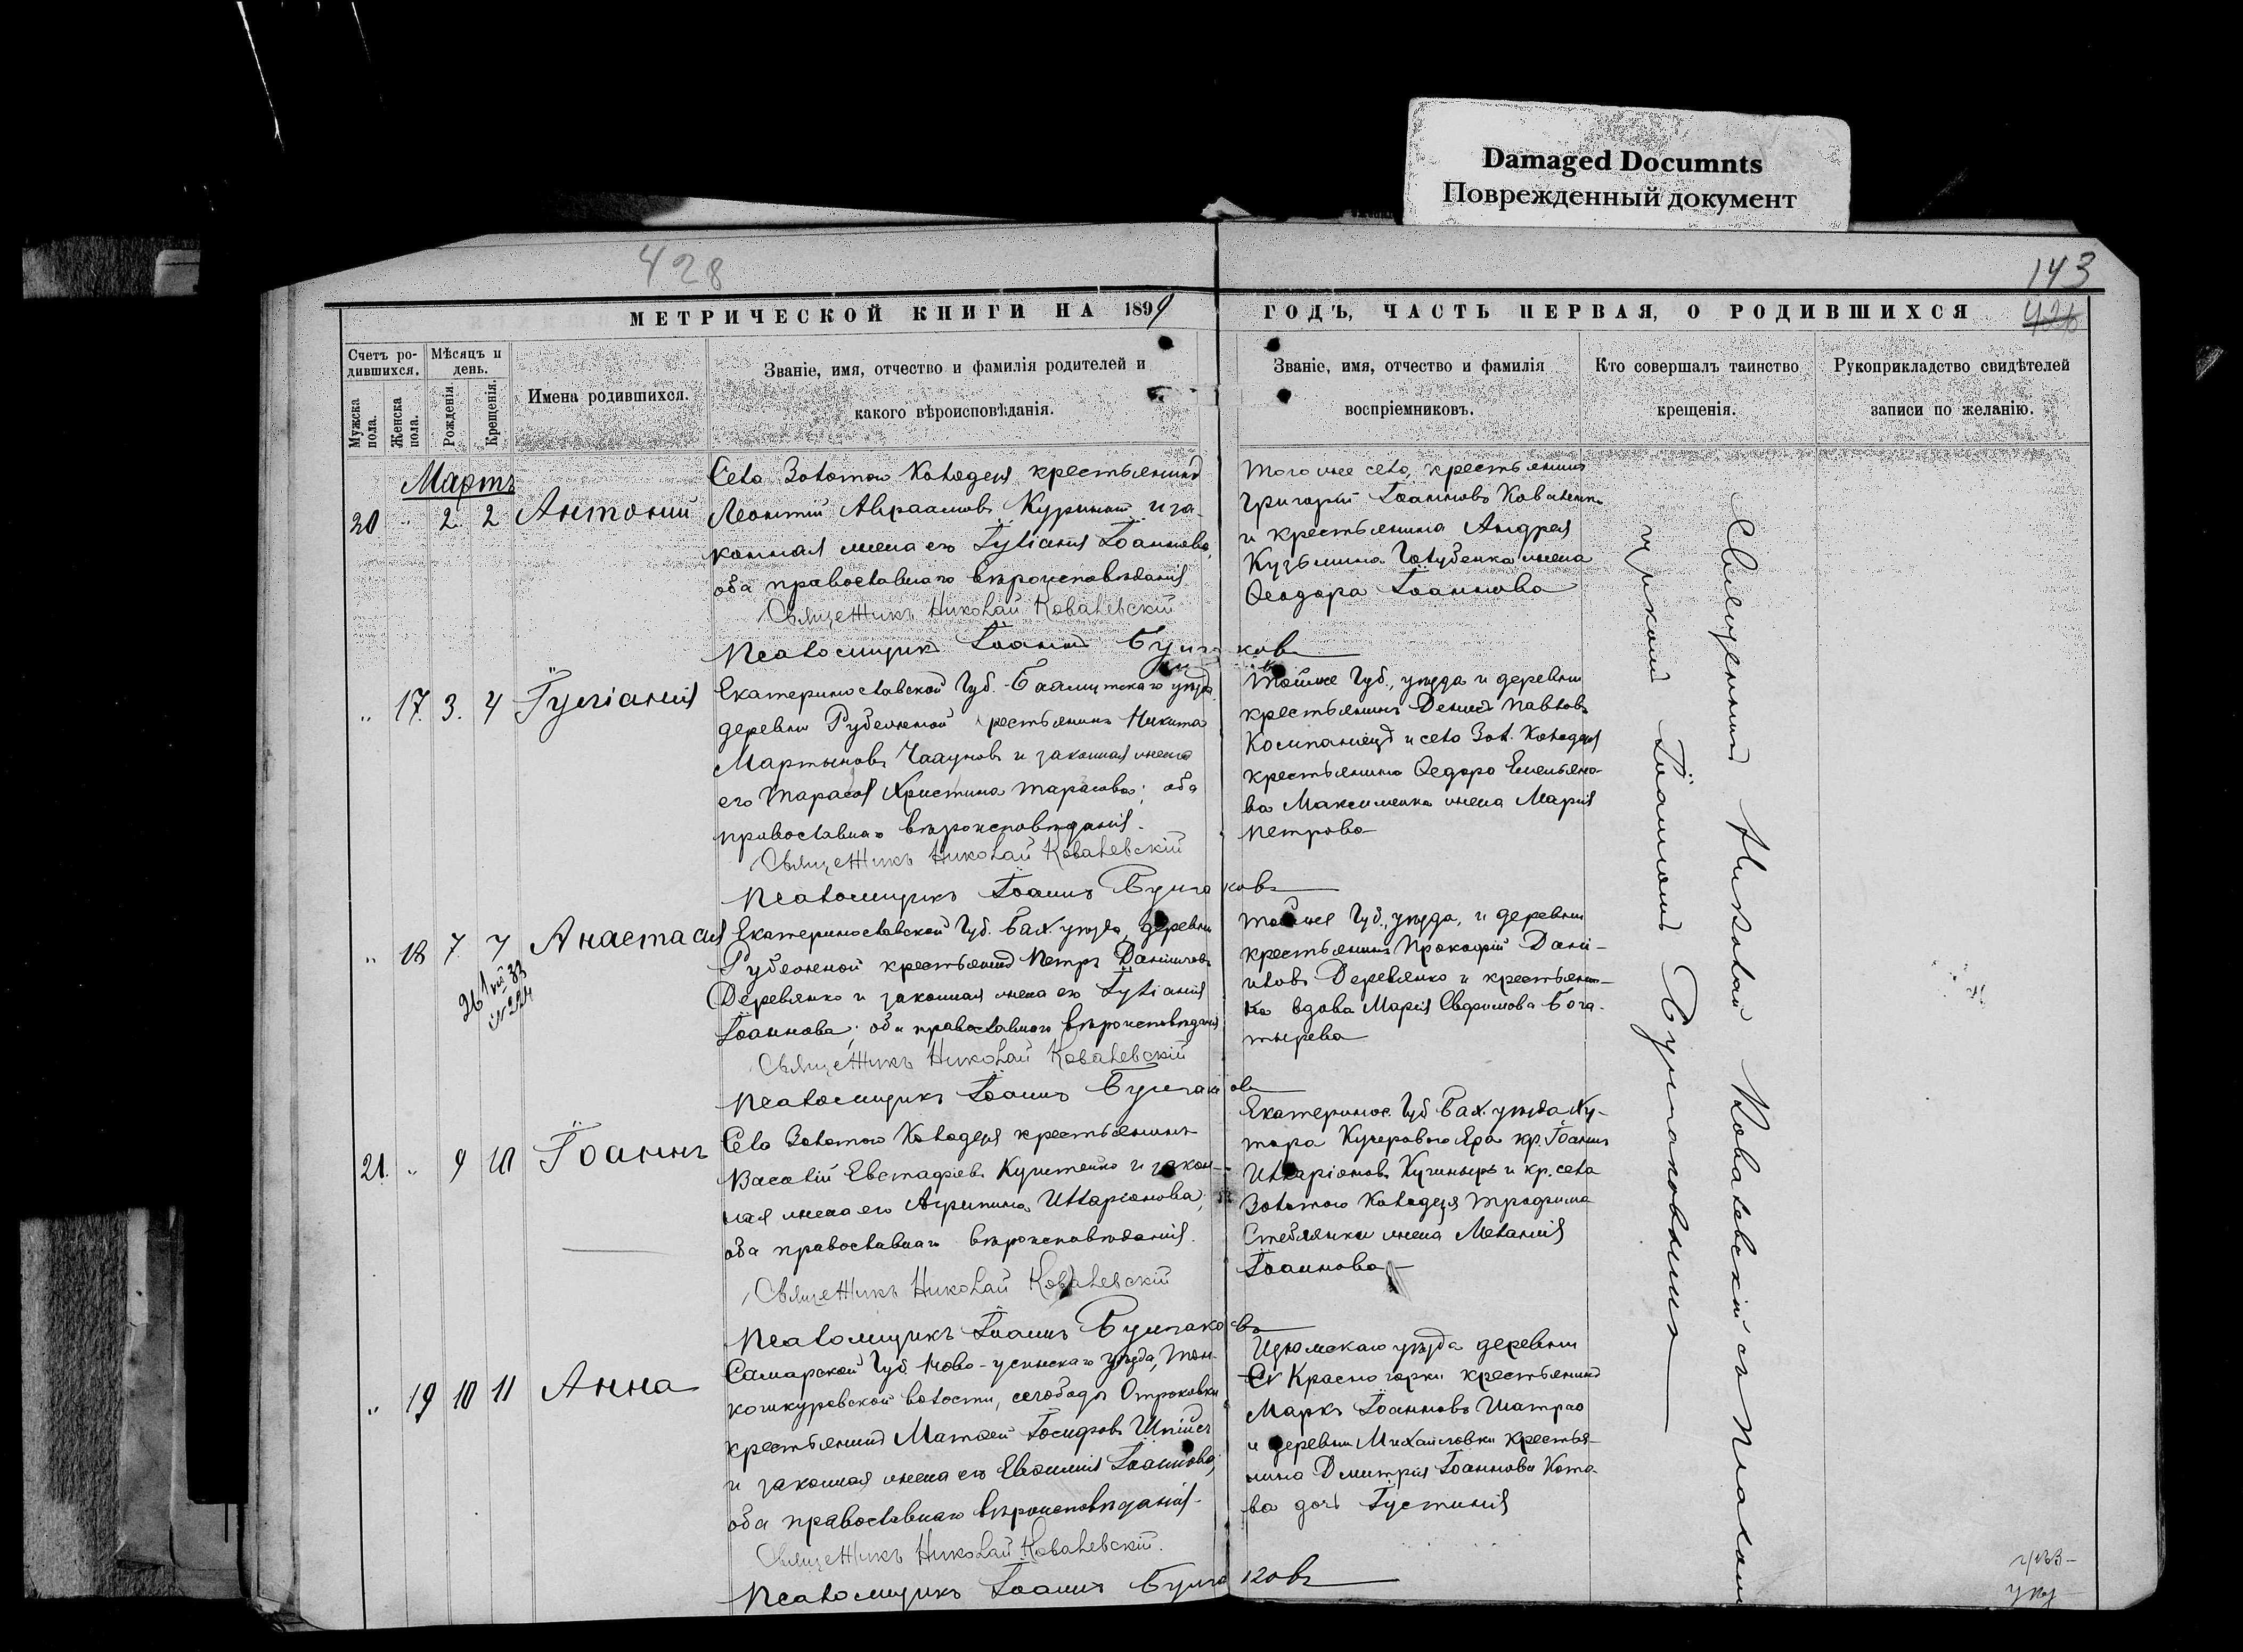 Damaged Documnts
Поврежденный документ
428
143
МЕТРИЧЕСКОЙ КНИГИ НА 1899
ГОДЪ, ЧАСТЬ ПЕРВАЯ, О РОДИВШИХСЯ
Счетъ ро-
дившихся.
Мѣсяцъ и
день.
Мужска
пола.
Женска
пола.
Рожденія.
Крещенія.
Имена родившихся.
Званіе, имя, отчество и фамилія родителей и
какого вѣроисповѣданія.
Званіе, имя, отчество и фамилія
воспріемниковъ.
Кто совершалъ таинство
крещенія.
Рукоприкладство свидѣтелей
записи по желанію.
Мартъ
20 " 2. 2 Антоній
Села Золотого Колодезя крестьянинъ
Леонтій Авраамовъ и за-
конная жена его Іуліанія Іоаннова,
оба православнаго вѣроисповѣданія
Священникъ Николай Ковалевскій
Псаломщикъ Іоаннъ Булгаковъ
Того же села, крестьянинъ
Григорій Іоанновъ
и крестьянина Андрея
Кузьмина Голубенка жена
Ѳеодора Іоаннова
" 17. 3. 4 Іуліанія
Екатеринославской Губ. Бахмутскаго уѣзда
деревни Рубежной крестьянинъ Никита
Мартыновъ и законная жена
его Христина Тарасова; оба
православнаго вѣроисповѣданія.
Священникъ Николай Ковалевскій
Псаломщикъ Іоаннъ Булгаковъ
Тойже Губ., уѣзда и деревни
крестьянинъ Денисъ Павловъ
Компаніецъ и села Зол. Колодезя
крестьянина Ѳедора Емельяно-
ва Максименка жена Марія
Петрова
" 18 7. 7 Анастасія
№ 224
Екатеринославской Губ. Бах. уѣзда, деревни
Рубежной крестьянинъ Петръ Даніиловъ
Деревянко и законная жена его Іуліанія
Іоаннова; оба православнаго вѣроисповѣданія
Священникъ Николай Ковалевскій
Псаломщикъ Іоаннъ Булгаковъ
Тойже Губ., уѣзда, и деревни
крестьянинъ Прокофій Дані-
иловъ Деревянко и крестьян-
ка вдова Марія Евфимова Бога-
тырева
21. " 9 10 Іоаннъ
Села Золотого Колодезя крестьянинъ
Василій Евстафіевъ и закон-
ная жена его Агрипина Илларіонова,
оба православнаго вѣроисповѣданія.
Священникъ Николай Ковалевскій
Псаломщикъ Іоаннъ Булгаковъ
Екатеринос. Губ Бах. уѣзда Ху-
тора Кучерового Яра кр. Іоаннъ
Илларіоновъ и кр. села
Золотого Колодезя Трофима
жена Меланія
Іоаннова
" 19 10 11 Анна
Самарской Губ. Ново-узенскаго уѣзда,
волости, слободы Отроковки
крестьянинъ Матѳей Іосифовъ
и законная жена его Евфимія Іоаннова,
оба православнаго вѣроисповѣданія.
Священникъ Николай Ковалевскій.
Псаломщикъ Іоаннъ Булгаковъ
Изюмскаго уѣзда деревни
Красно горки крестьянинъ
Маркъ Іоанновъ
и деревни Михайловки крестья-
нина Дмитрія Іоаннова Кота-
ва дочь Іустинія
Священникъ Николай Ковалевскій съ Псалом
щикомъ Іоанномъ Булгаковымъ